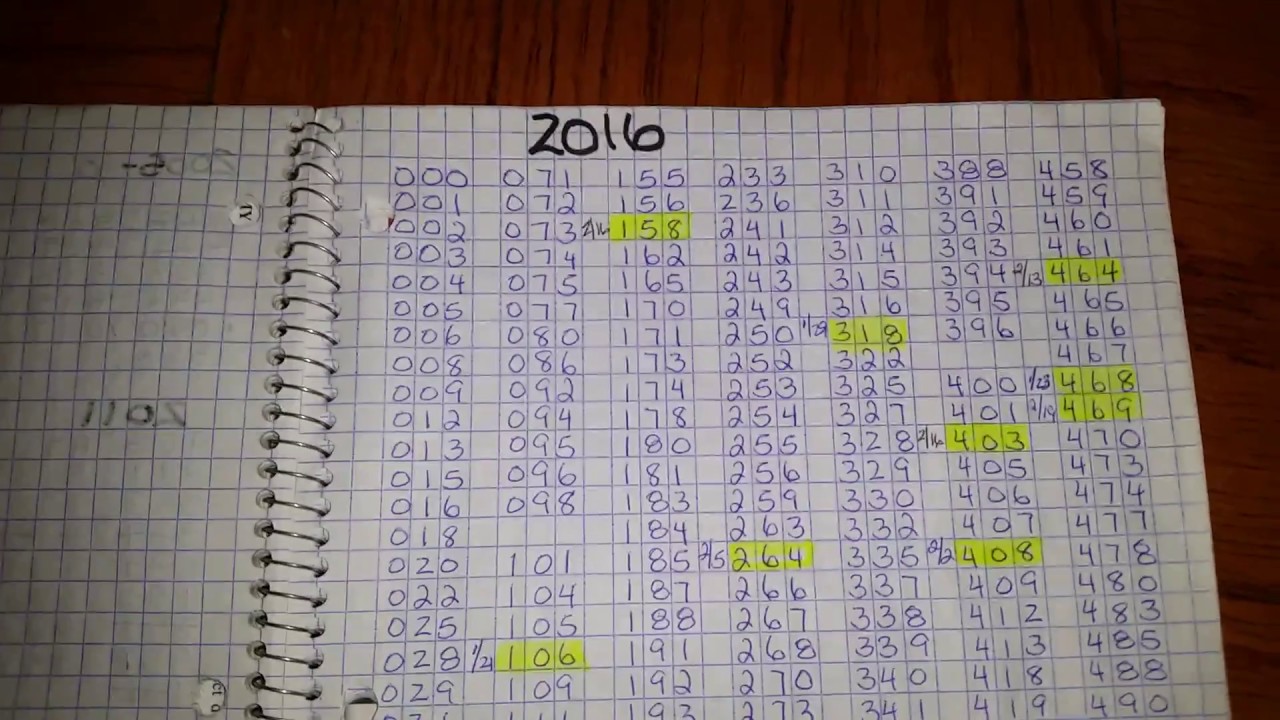 2016
000 071 155 233 310 388 458
001 072 156 236 311 391 459
002 073 2/16 158 241 312 392 460
003 074 162 242 314 393 461
004 075 165 243 315 394 2/13 464
005 077 170 249 316 395 465
006 080 171 250 1/29 318 396 466
008 086 173 252 322 467
009 092 174 253 325 400 1/23 468
012 094 178 254 327 401 2/19 469
013 095 180 255 328 2/16 403 470
015 096 181 256 329 405 473
016 098 183 259 330 406 474
018 184 263 332 407 477
020 101 185 2/5 264 335 2/2 408 478
022 104 187 266 337 409 480
025 105 188 267 338 412 483
028 1/21 106 191 268 339 413 485
029 109 192 270 340 418 488
193 273 341 419 490